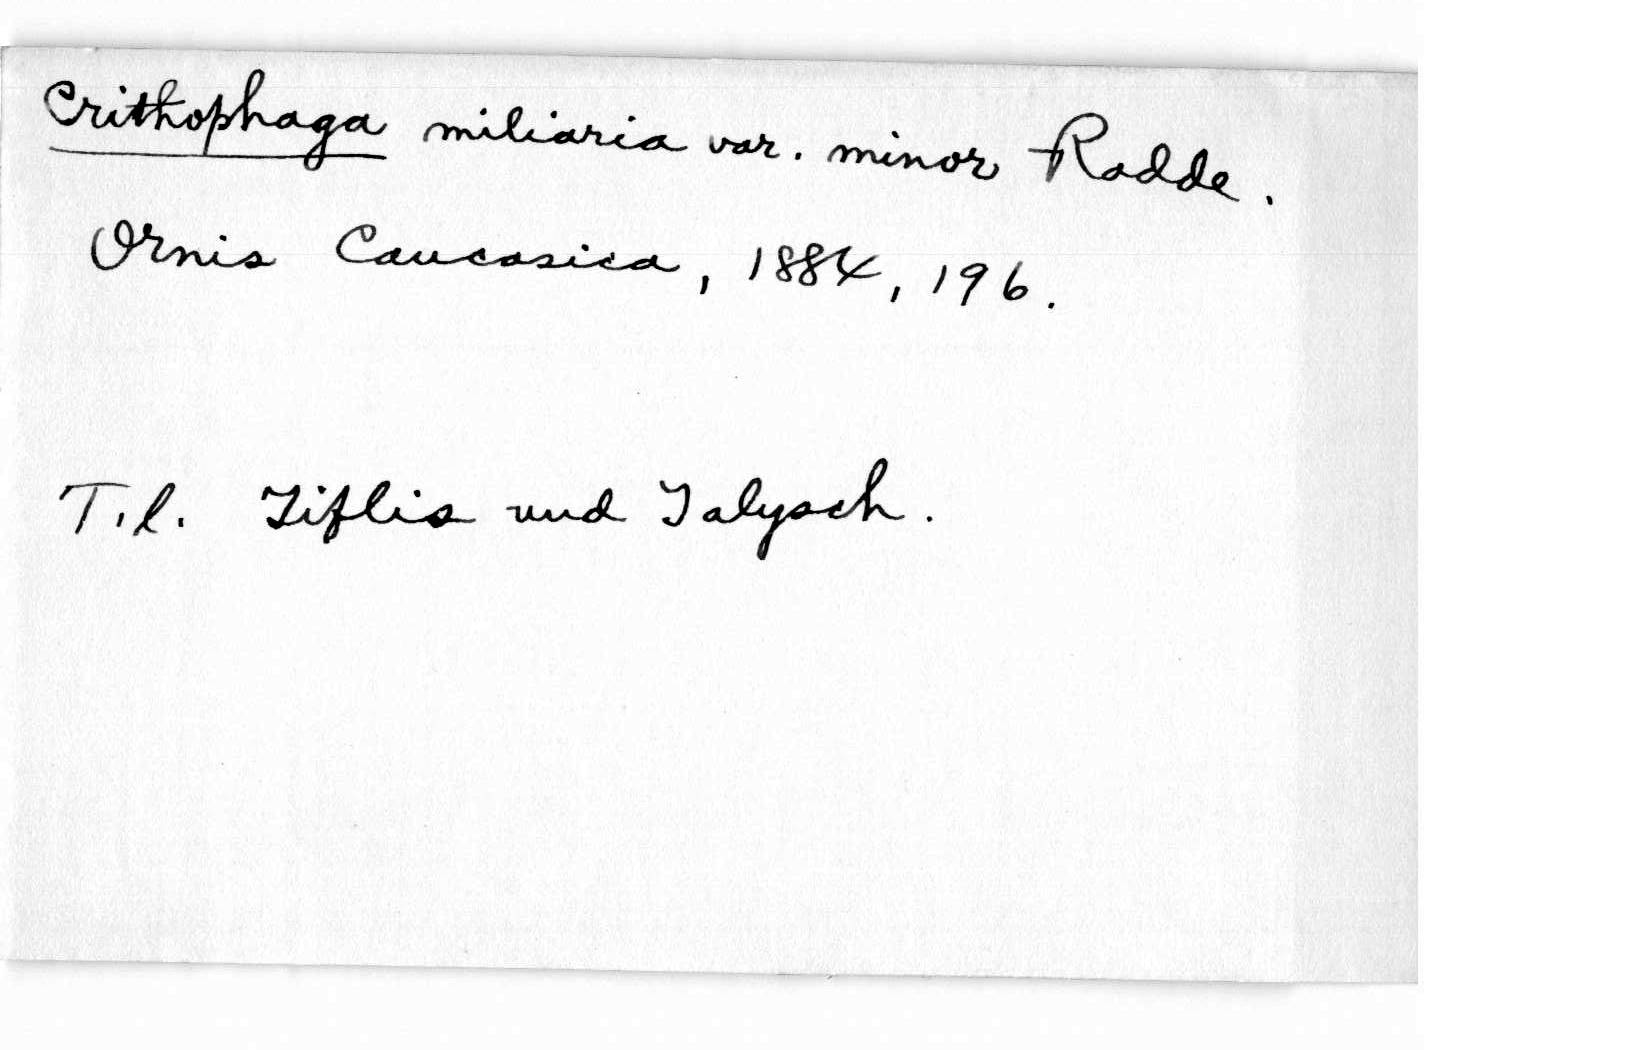 Crithophaga miliaria var. minor Radde.
Ornis Caucasica, 1884, 196.
T.l. Tiflis und Talysch.